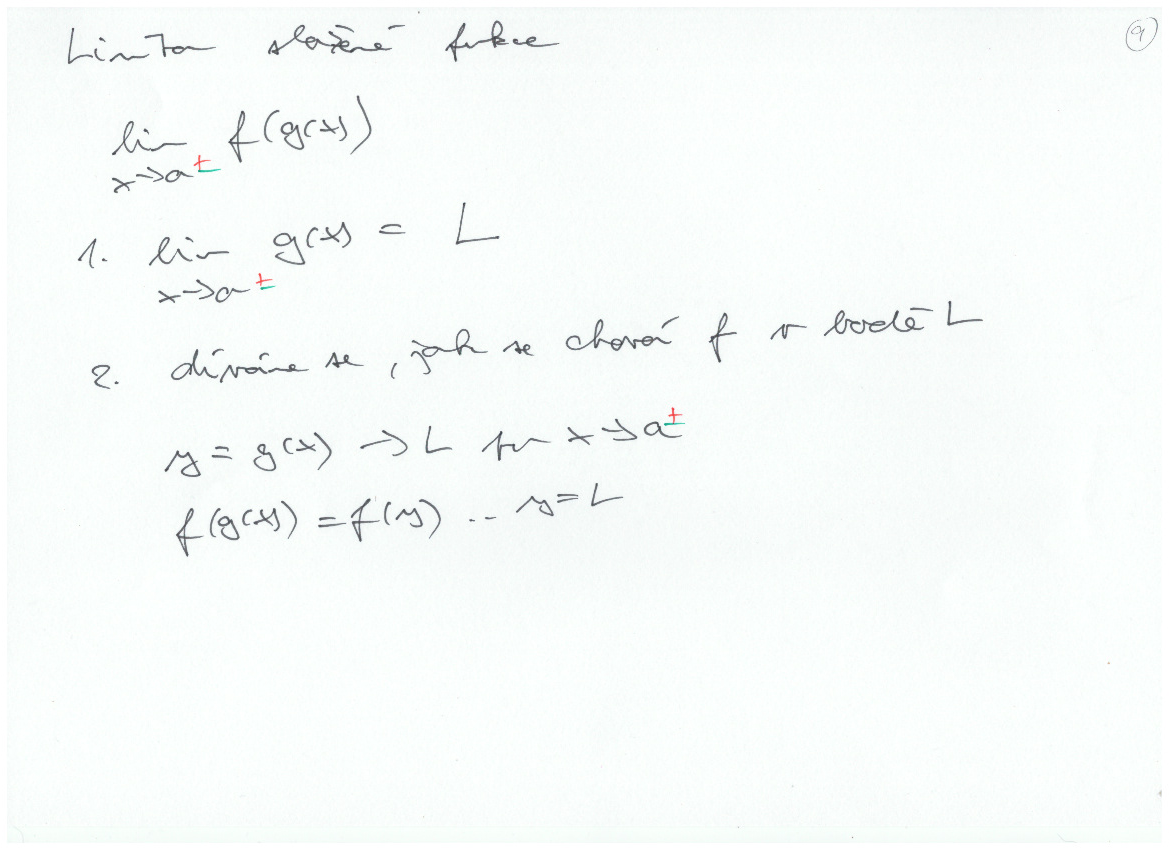 Limita složené funkce
9
lim f(g(x))
x→a±
1. lim g(x) = L
x→a±
2. díváme se, jak se chová f v bodě L
y = g(x) → L pro x→a±
f(g(x)) = f(y) .. y=L